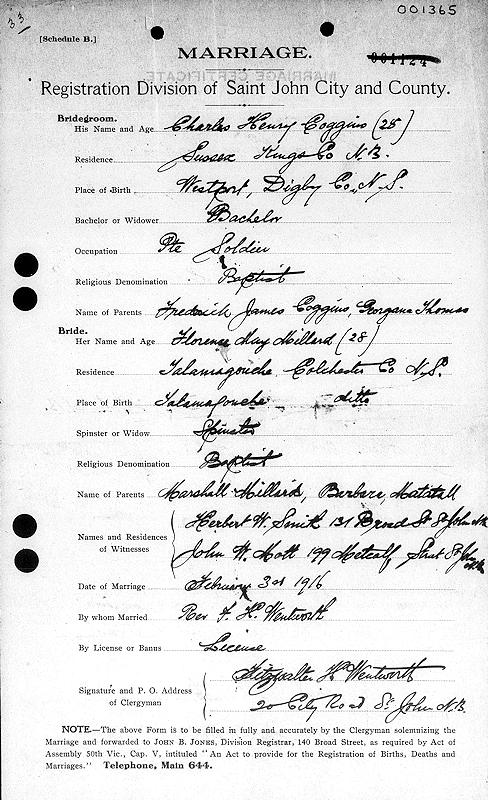 33
001365
[Schedule B.]
MARRIAGE.
001124
MARRIAGE CERTIFICATE
Registration Division of Saint John City and County.
Bridegroom.
His Name and Age Charles Henry Coggins (25)
Residence Sussex Kings Co N.B.
Place of Birth Westport, Digby Co, N.S.
Bachelor or Widower Bachelor
Occupation Pte Soldier
Religious Denomination Baptist
Name of Parents Frederick James Coggins, Georgana Thomas
Bride.
Her Name and Age Florence May Millard (28)
Residence Tatamagouche Colchester Co N.S.
Place of Birth Tatamagouche ditto
Spinster or Widow Spinster
Religious Denomination Baptist
Name of Parents Marshall Millard, Barbara, Matatall
Names and Residences of Witnesses
Herbert W. Smith 131 Broad St St John N.B.
John W. Mott 199 Metcalf Street St John N.B.
Date of Marriage February 3rd 1916
By whom Married Rev F. H. Wentworth
By License or Banus License
Signature and P. O. Address of Clergyman
Fitzwalter H Wentworth
20 City Road St. John N.B.
NOTE.—The above Form is to be filled in fully and accurately by the Clergyman solemnizing the
Marriage and forwarded to JOHN B. JONES, Division Registrar, 140 Broad Street, as required by Act of
Assembly 50th Vic., Cap. V, intituled "An Act to provide for the Registration of Births, Deaths and
Marriages." Telephone, Main 644.